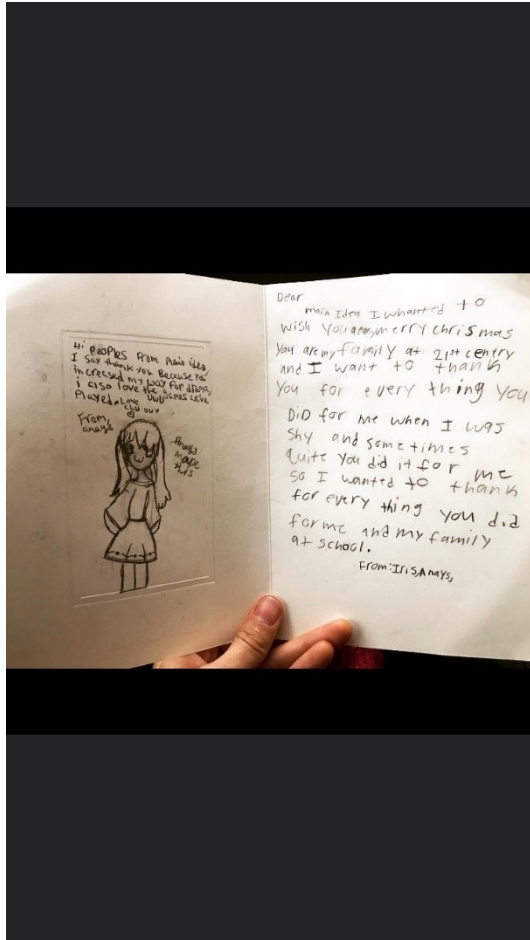 Hi peoples From main idea,
I say thank you Because you
incressed my way for drama,
i also love the games we've
Played. Love
From,
anays
Anays
made
this
Dear
main Idea I whanted to
wish you a merry chrismas
you are my family at 21st centry
and I want to thank
you for every thing you
DiD for me when I was
shy and some times
quite you did it for me
so I wanted to thank
for every thing you did
for me and my family
at school.
From: Iris, Anays,